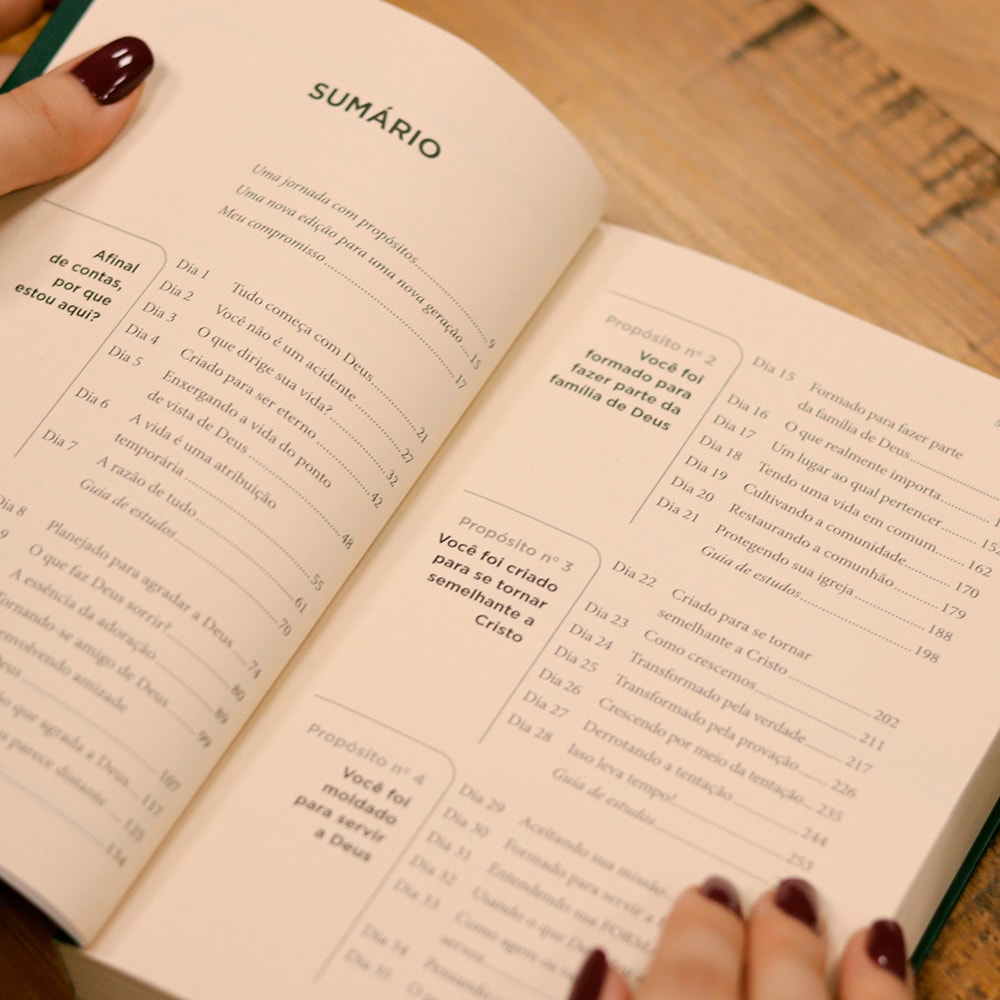 SUMÁRIO
Uma jornada com propósitos 9
Uma nova edição para uma nova geração 15
Meu compromisso 17
Afinal
de contas,
por que
estou aqui?
Dia 1 Tudo começa com Deus 21
Dia 2 Você não é um acidente 27
Dia 3 O que dirige sua vida? 32
Dia 4 Criado para ser eterno 42
Dia 5 Enxergando a vida do ponto
de vista de Deus 48
Dia 6 A vida é uma atribuição
temporária 55
Dia 7 A razão de tudo 61
Guia de estudos 70
Dia 8 Planejado para agradar a Deus 74
9 O que faz Deus sorrir? 80
A essência da adoração 89
Tornando-se amigo de Deus 99
amizade
107
que agrada a Deus 117
parece distante 125
134
Propósito nº 2
Você foi
formado para
fazer parte da
família de Deus
Dia 15 Formado para fazer parte
da família de Deus
Dia 16 O que realmente importa
Dia 17 Um lugar ao qual pertencer
Dia 18 Tendo uma vida em comum 162
Dia 19 Cultivando a comunidade 170
Dia 20 Restaurando a comunhão 179
Dia 21 Protegendo sua igreja 188
Guia de estudos 198
Propósito nº 3
Você foi criado
para se tornar
semelhante a
Cristo
Dia 22 Criado para se tornar
semelhante a Cristo 202
Dia 23 Como crescemos 211
Dia 24 Transformado pela verdade 217
Dia 25 Transformado pela provação 226
Dia 26 Crescendo por meio da tentação 235
Dia 27 Derrotando a tentação 244
Dia 28 Isso leva tempo! 253
Guia de estudos
Propósito nº 4
Você foi
moldado
para servir
a Deus
Dia 29 Aceitando sua missão
Dia 30 Formado para servir a
Dia 31 Entendendo sua
Dia 32 Usando o que
Dia 33 Como agem os
Dia 34
Dia 35